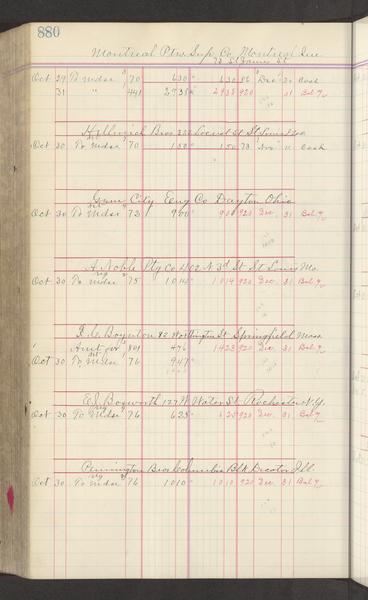 880
Montreal Ptrs Sup. Co. Montreal Que.
Oct 29 To Mdse 70 630 630 86 Dec 20 Cash
31 " 441 2938 2938 920 31 Bal
Bros Locust St St Louis Mo
Oct 30 To Mdse 70 150 150 78 Nov 11 Cash
Gem City Eng Co Dayton Ohio
Oct 30 To Mdse 73 900 900 920 Dec 31 Bal
A. Noble Ptg Co 402 N 3d St St Louis Mo.
Oct 30 To Mdse 75 1014 1014 920 Dec 31 Bal
Boynton 82 Worthington St Springfield Mass
Amt 801 476 1423 920 Dec 31 Bal
Oct 30 To Mdse 76 947
E.J. Bosworth 127 W Water St. Rochester N.Y.
Oct 30 To Mdse 76 625 625 920 Dec 31 Bal
Pennington Bros Columbia Blk Decator Ill.
Oct 30 To Mdse 76 1010 1010 920 Dec 31 Bal